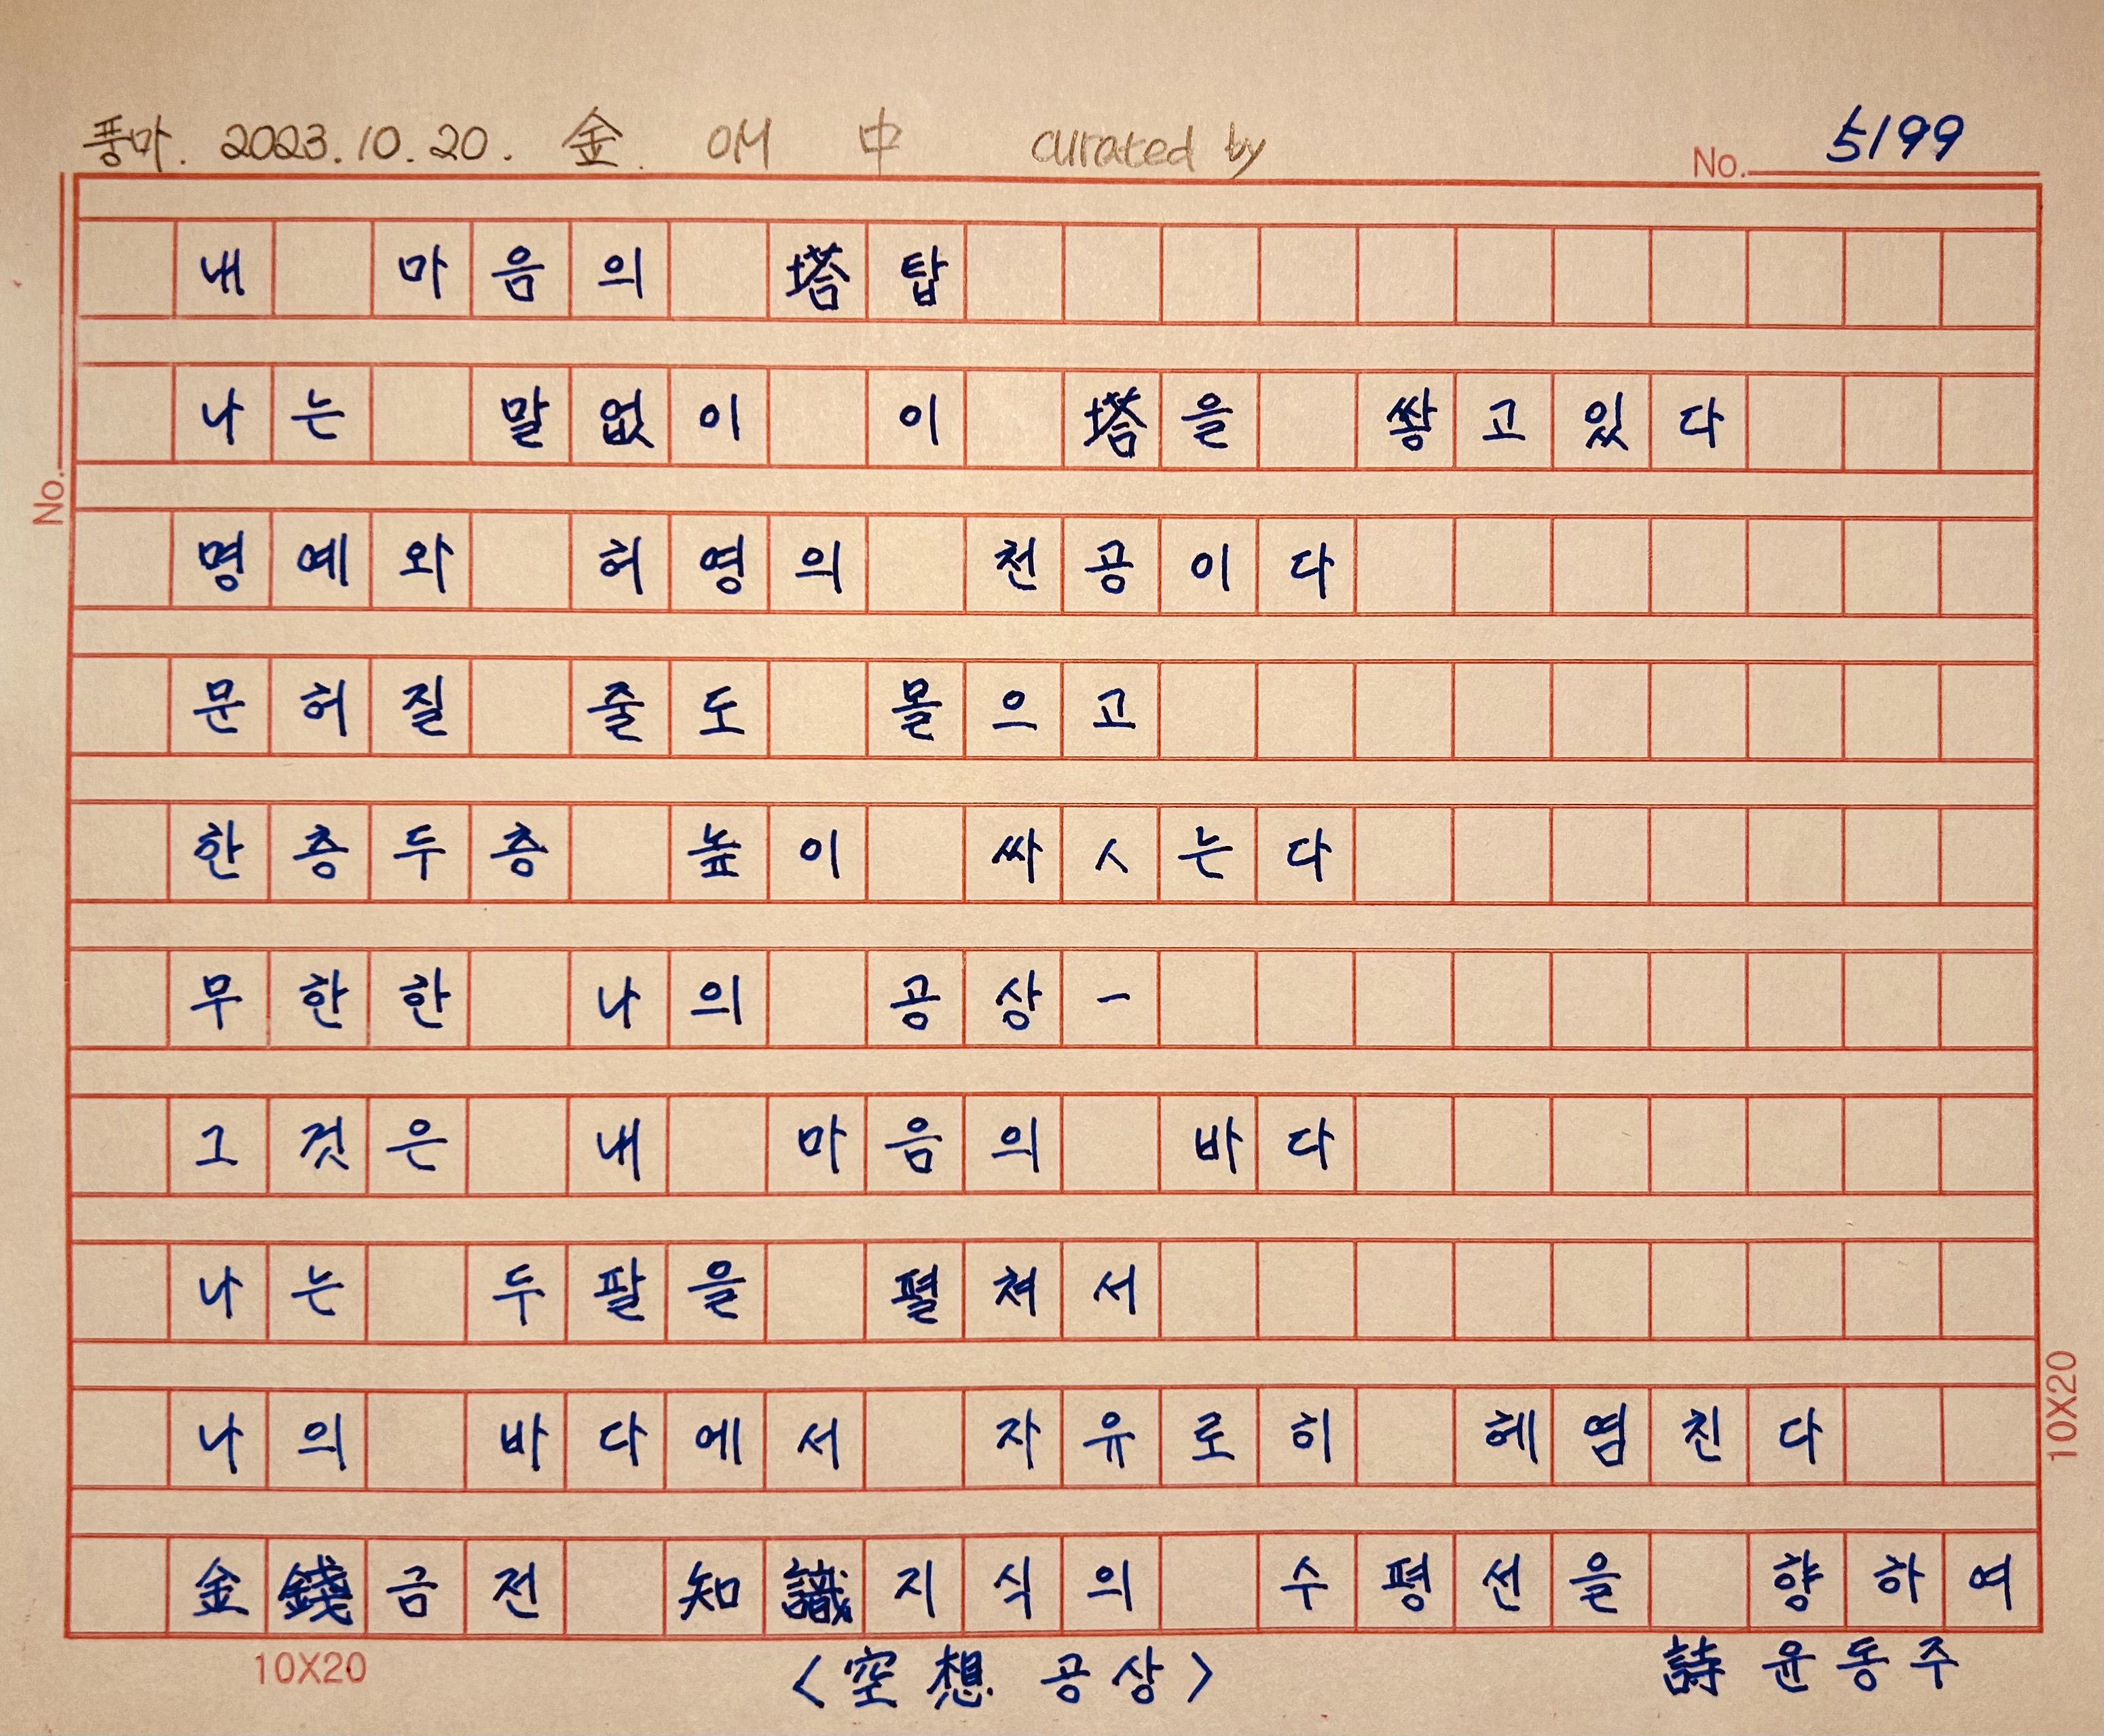 풍마. 2023. 10. 20. 金. OM 中 curated by
No. 5199
내 마음의 塔탑
나는 말없이 이 塔을 쌓고있다
명예와 허영의 천공이다
문허질 줄도 몰으고
한층두층 높이 싸ㅅ는다
무한한 나의 공상-
그것은 내 마음의 바다
나는 두팔을 펼쳐서
나의 바다에서 자유로히 헤염친다
金錢금전 知識지식의 수평선을 향하여
<空想 공상> 詩 윤동주
10X20
No.
10X20